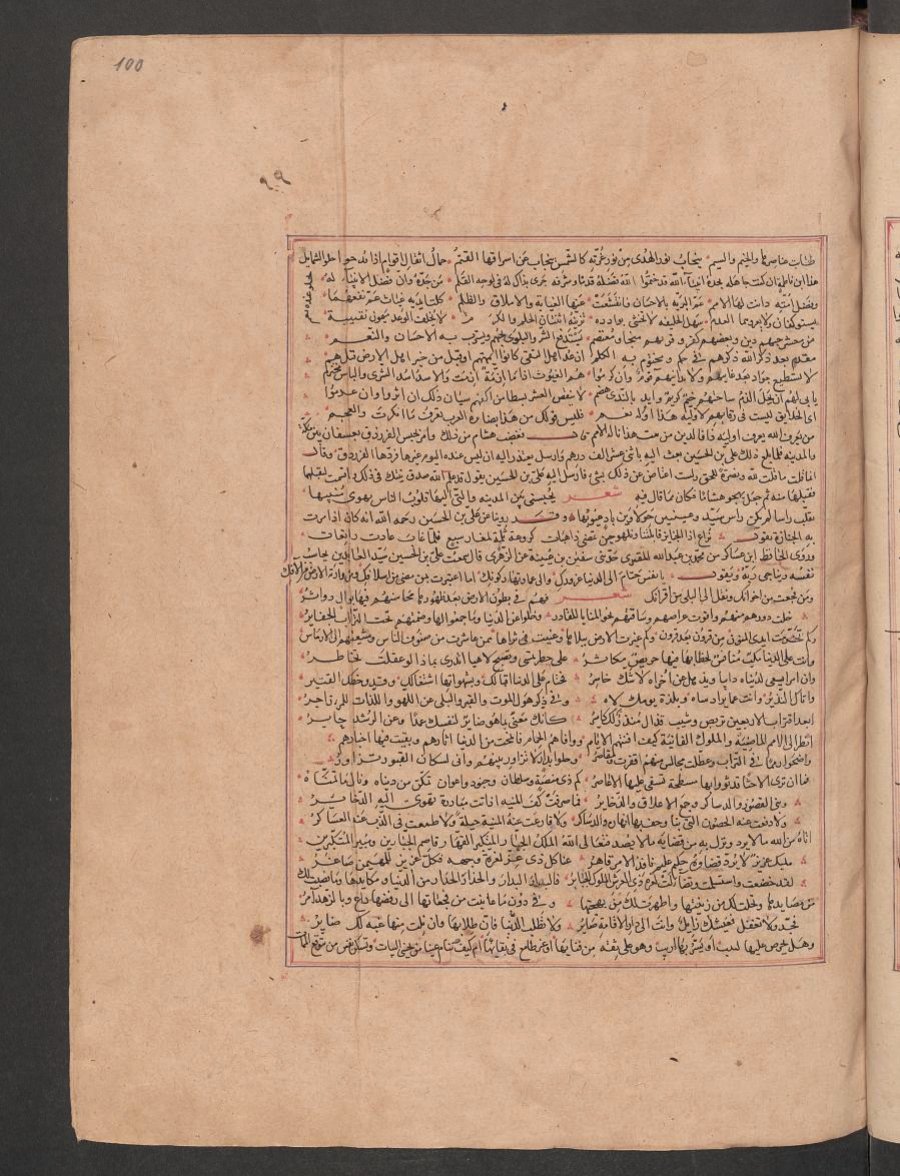 100
٩٩
طابت عناصره والخيم والشيم ۞ ينجاب نور الهدى من نور غرته كالشمس ينجاب عن اشراقها القتم ۞ حمال اثقال اقوام اذا فدحوا حلو الشمايل
تحلو عنده نعم
هذا ابن فاطمة ان كنت جاهله بجده انبياء الله قد ختموا الله فضله قدما وشرفه جرى بذاك له في لوحه القلم ۞ من جده دان فضل الانبياء له
وفضل امته دانت لها الامم ۞ عم البرية بالاحسان فانقشعت ۞ عنها الغياية والاملاق والظلم ۞ كلتا يديه غياث عم نفعهما
يستوكفان ولا يعروهما العدم ۞ سهل الخليقة لا تخشى بوادره ۞ يزينه اثنتان الحلم والكرم ۞ لا يخلف الوعد ميمون نقيبته
من معشر حبهم دين وبغضهم كفر وقربهم منجا ومعتصم ۞ يستدفع الشر والبلوى بحبهم ويسترب به الاحسان والنعم
مقدم بعد ذكر الله ذكرهم في كل حكم ومختوم به الكلم ۞ ان عد اهل التقى كانوا ائمتهم او قيل من خير اهل الارض قيل هم
لا يستطيع جواد بعد غايتهم ولا يدانيهم قوم وان كرموا ۞ هم الغيوث اذا ما ازمة ازمت والاسد اسد الشرى والباس محتدم
يابى لهم ان يحل الذم ساحتهم خيم كريم وايد بالندى هضم ۞ لا ينقص العسر بسطا من اكفهم سيان ذلك ان اثروا وان عدموا
اى الخلايق ليست في رقابهم لاولية هذا اوله نعم ۞ فليس قولك من هذا بضاره العرب تعرف ما انكرت والعجم
من يعرف الله يعرف اولية ذا فالدين من بيت هذا ناله الامم فغضب هشام من ذلك وامر بحبس الفرزدق بعسفان بين مكة
والمدينه فلما بلغ ذلك علي بن الحسين بعث اليه باثنى عشر الف درهم وارسل يعتذر اليه ان ليس عنده اليوم غيرها فردها الفرزدق وقال
انما قلت ما قلت لله ونصرة للحق ولست اعتاض عن ذلك بشي فارسل اليه علي بن الحسين يقول قد علم الله صدق نيتك في ذلك اقسمت لتقبلها
فقبلها منه ثم جعل يهجو هشاما فكان مما قال فيه شعر يحبسني بين المدينه والتي اليها قلوب الناس يهوى منيبها
يقلب راسا لم يكن راس سيد وعينين حولاوين باد عيوبها ۞ وقد روينا عن علي بن الحسين رحمه الله انه كان اذا مرت
به الجنازة يقول ۞ نراع اذا الجنايز قابلتنا ونلهو حين تمضي ذاهبات كروعة ثلة لمغار سبع فلما غاب عادت راتعات
وروى الحافظ ابن عساكر من محمد بن عبد الله المقري حدثنى سفين بن عيينة عن الزهري قال سمعت علي بن الحسين سيد العابدين يحاسب
نفسه ويناجي ربه ويقول يا نفس حتام الى الدنيا غرورك والى عمارتها ركونك اما اعتبرت بمن مضى من اسلافك ومن وارته الارض من الافك
ومن فجعت من اخوانك ونقل الى البلى من اقرانك شعر فهم في بطون الارض بعد ظهورها محاسنهم فيها بوال دواثر
خلت دورهم منهم واقوت عراصهم وساقتهم نحو المنايا المقادر ۞ وخلوا عن الدنيا وما جمعوا لها وضمتهم تحت التراب الحفاير
كم تخرمت ايدي المنون من قرون بعد قرون وكم غيرت الارض ببلاها وغيبت في ثراها ممن عاشرت من صنوف الناس وشيعتهم الى الارماس
وانت على الدنيا مكب منافس لخطابها فيها حريص مكاثر ۞ على خطر تمسي وتصبح لاهيا اتدري بماذا لو عقلت تخاطر
وان امرا يسعى لدنياه دايبا ويذهل عن اخراه لا شك خاسر
ابعد اقتراب الاربعين تربص وشيب قذال منذ ذلك كامر ۞ كانك معنى بما هو ضاير لنفسك عمدا وعن الرشد جاير
انظر الى الامم الماضية والملوك الفانية كيف افنتهم الايام ووافاهم الحمام فانمحت من الدنيا اثارهم وبقيت فيها اخبارهم
واضحوا رميما في التراب وعطلت مجالس منهم اقفرت ومقاصر ۞ وحلوا بدار لا تزاور بينهم وانى لسكان القبور تزاور
فما ان ترى الاجثا قد ثووا بها مسطحة تسفي عليها الاعاصر ۞ كم ذي منعة وسلطان وجنود واعوان تمكن من دنياه ونال ما تمناه
وبنى القصور والدساكر وجمع الاعلاق والذخاير ۞ فما صرفت كف المنية اذ اتت مبادرة تهوي اليه الذخاير
ولا دفعت عنه الحصون التي بنا وحف بها انهاره والدساكر ۞ ولا قارعت عنه المنية حيلة ولا طمعت في الذب عنه العساكر
اتاه من الله مالا يرد ونزل به من قضايه مالا يصد فتعالى الله الملك الجبار المتكبر القهار وقاصم الجبارين ومبير المتكبرين
مليك عزيز لا يرد قضاؤه حكيم عليم نافذ الامر قاهر ۞ عنا كل ذي عز لعزة وجهه فكل عزيز للمهيمن صاغر
لقد خضعت واستسلمت وتضاءلت لعزة ذي العرش الملوك الجبابر ۞ فالبدار البدار والحذار الحذار من الدنيا ومكايدها وما نصبت لك
من مصايدها وتحلت لك من زينتها واظهرت لك من بهجتها ۞ وفي دون ما عاينت من فجعاتها الى رفضها داع وبالزهد آمر
فجد ولا تغفل فعيشك زايل وانت الى دار الاقامة صاير ۞ ولا تطلب الدنيا فان طلابها وان نلت منها غبه لك ضاير
وهل يحرص عليها لبيب او يسر بها اريب وهو على ثقة من فنايها